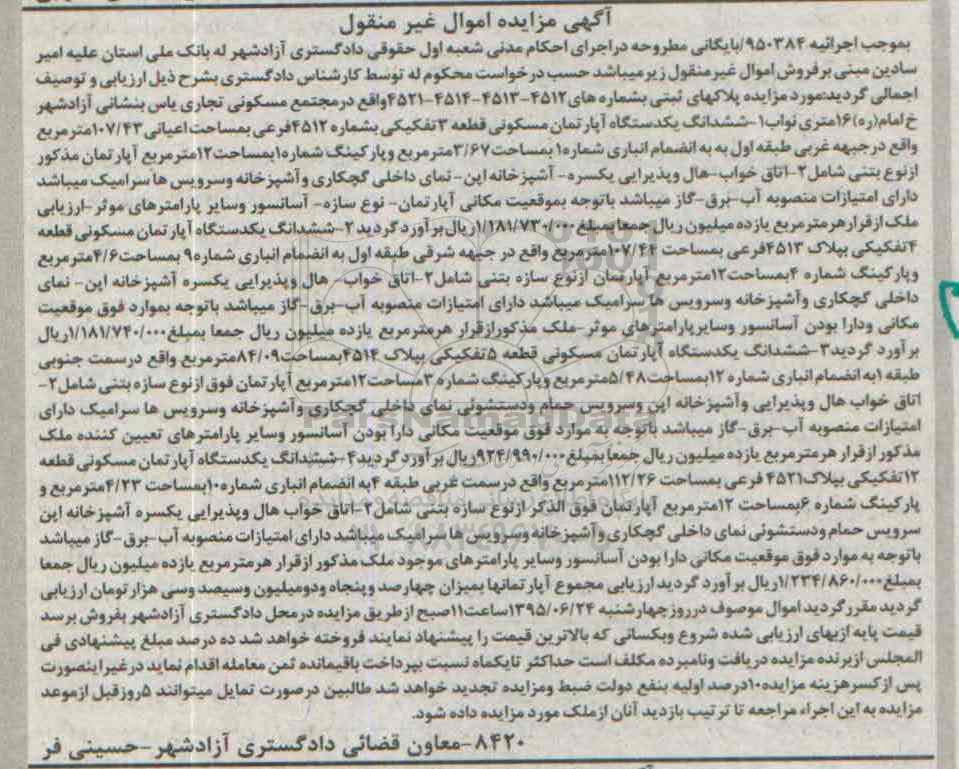 آگهی مزایده اموال غیر منقول
بموجب اجرائیه ۹۵۰۳۸۴/بایگانی مطروحه دراجرای احکام مدنی شعبه اول حقوقی دادگستری آزادشهر له بانک ملی استان علیه امیر
سادین مبنی برفروش اموال غیرمنقول زیرمیباشد حسب درخواست محکوم له توسط کارشناس دادگستری بشرح ذیل ارزیابی و توصیف
اجمالی گردید:مورد مزایده پلاکهای ثبتی بشماره های۴۵۱۲-۴۵۱۳-۴۵۱۴-۴۵۲۱واقع درمجتمع مسکونی تجاری یاس بنشانی آزادشهر
خ امام(ره)۱۶متری نواب۱-ششدانگ یکدستگاه آپارتمان مسکونی قطعه ۳تفکیکی بشماره ۴۵۱۲فرعی بمساحت اعیانی ۱۰۷/۴۳مترمربع
واقع درجبهه غربی طبقه اول به به انضمام انباری شماره۱ بمساحت۳/۶۷مترمربع وپارکینگ شماره۱بمساحت۱۲مترمربع آپارتمان مذکور
ازنوع بتنی شامل۲-اتاق خواب-هال وپذیرایی یکسره- آشپزخانه اپن- نمای داخلی گچکاری وآشپزخانه وسرویس ها سرامیک میباشد
دارای امتیازات منصوبه آب-برق-گاز میباشد باتوجه بموقعیت مکانی آپارتمان- نوع سازه- آسانسور وسایر پارامترهای موثر-ارزیابی
ملک ازقرارهرمترمربع یازده میلیون ریال جمعابمبلغ۱/۱۸۱/۷۳۰/۰۰۰ریال برآورد گردید ۲-ششدانگ یکدستگاه آپارتمان مسکونی قطعه
۴تفکیکی بپلاک ۴۵۱۳فرعی بمساحت ۱۰۷/۴۴مترمربع واقع در جبهه شرقی طبقه اول به انضمام انباری شماره۹ بمساحت۴/۶مترمربع
وپارکینگ شماره ۴بمساحت۱۲مترمربع آپارتمان ازنوع سازه بتنی شامل۲-اتاق خواب- هال وپذیرایی یکسره آشپزخانه اپن- نمای
داخلی گچکاری وآشپزخانه وسرویس ها سرامیک میباشد دارای امتیازات منصوبه آب-برق-گاز میباشد باتوجه بموارد فوق موقعیت
مکانی ودارا بودن آسانسور وسایرپارامترهای موثر-ملک مذکورازقرار هرمترمربع یازده میلیون ریال جمعا بمبلغ۱/۱۸۱/۷۴۰/۰۰۰ریال
برآورد گردید۳-ششدانگ یکدستگاه آپارتمان مسکونی قطعه ۵تفکیکی بپلاک ۴۵۱۴بمساحت۸۴/۰۹مترمربع واقع درسمت جنوبی
طبقه ۱به انضمام انباری شماره ۱۲بمساحت۵/۴۸مترمربع وپارکینگ شماره ۳مساحت۱۲مترمربع آپارتمان فوق ازنوع سازه بتنی شامل۲-
اتاق خواب هال وپذیرایی وآشپزخانه اپن وسرویس حمام ودستشوئی نمای داخلی گچکاری وآشپزخانه وسرویس ها سرامیک دارای
امتیازات منصوبه آب-برق-گاز میباشد باتوجه به موارد فوق موقعیت مکانی دارا بودن آسانسور وسایر پارامترهای تعیین کننده ملک
مذکور ازقرار هرمترمربع یازده میلیون ریال جمعابمبلغ۹۲۴/۹۹۰/۰۰۰ریال برآورد گردید۴-ششدانگ یکدستگاه آپارتمان مسکونی قطعه
۱۲تفکیکی بپلاک۴۵۲۱ فرعی بمساحت ۱۱۲/۲۶مترمربع واقع درسمت غربی طبقه ۴به انضمام انباری شماره۱۰بمساحت ۴/۲۳مترمربع و
پارکینگ شماره ۶بمساحت ۱۲مترمربع آپارتمان فوق الذکر ازنوع سازه بتنی شامل۲-اتاق خواب هال وپذیرایی یکسره آشپزخانه اپن
سرویس حمام ودستشوئی نمای داخلی گچکاری وآشپزخانه وسرویس ها سرامیک میباشد دارای امتیازات منصوبه آب-برق-گاز میباشد
باتوجه به موارد فوق موقعیت مکانی دارا بودن آسانسور وسایر پارامترهای موجود ملک مذکور ازقرار هرمترمربع یازده میلیون ریال جمعا
بمبلغ۱/۲۳۴/۸۶۰/۰۰۰ریال برآورد گردید ارزیابی مجموع آپارتمانها بمیزان چهارصد وپنجاه ودومیلیون وسیصد وسی هزارتومان ارزیابی
گردید مقررگردید اموال موصوف درروزچهارشنبه ۱۳۹۵/۰۶/۲۴ساعت۱۱صبح ازطریق مزایده درمحل دادگستری آزادشهر بفروش برسد
قیمت پایه ازبهای ارزیابی شده شروع وبکسانی که بالاترین قیمت را پیشنهاد نمایند فروخته خواهد شد ده درصد مبلغ پیشنهادی فی
المجلس ازبرنده مزایده دریافت ونامبرده مکلف است حداکثر تایکماه نسبت بپرداخت باقیمانده ثمن معامله اقدام نماید درغیراینصورت
پس ازکسرهزینه مزایده۱۰درصد اولیه بنفع دولت ضبط ومزایده تجدید خواهد شد طالبین درصورت تمایل میتوانند ۵روزقبل ازموعد
مزایده به این اجراء مراجعه تا ترتیب بازدید آنان ازملک مورد مزایده داده شود.
۸۴۲۰-معاون قضائی دادگستری آزادشهر-حسینی فر